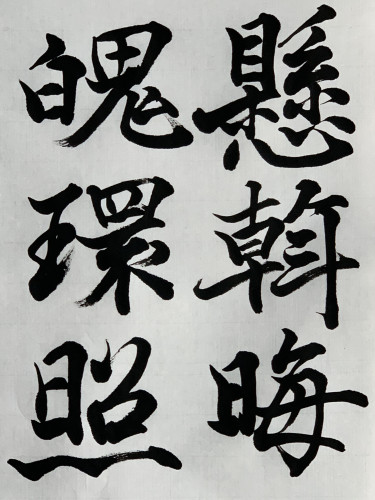 懸斡晦
魄環照